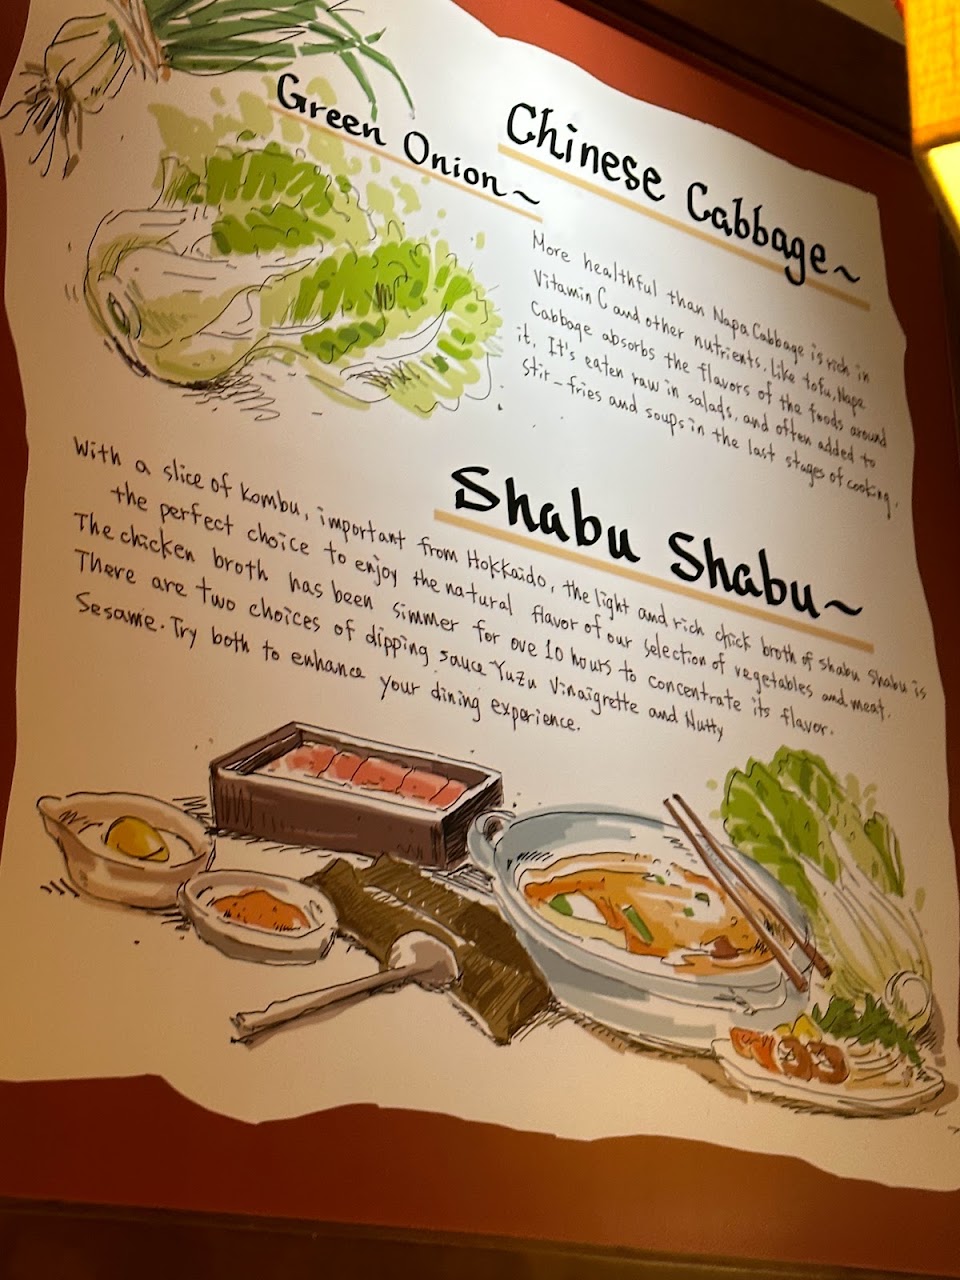 Green Onion~
Chinese Cabbage~
More healthful than Napa Cabbage is rich in
Vitamin C and other nutrients. Like tofu, Napa
Cabbage absorbs the flavors of the foods around
it. It's eaten raw in salads, and often added to
stir-fries and soups in the last stages of cooking.
Shabu Shabu~
With a slice of Kombu, important from Hokkaido, the light and rich chick broth of Shabu Shabu is
the perfect choice to enjoy the natural flavor of our selection of vegetables and meat.
The chicken broth has been simmer for ove 10 hours to concentrate its flavor.
There are two choices of dipping sauce Yuzu Vinaigrette and Nutty
Sesame. Try both to enhance your dining experience.